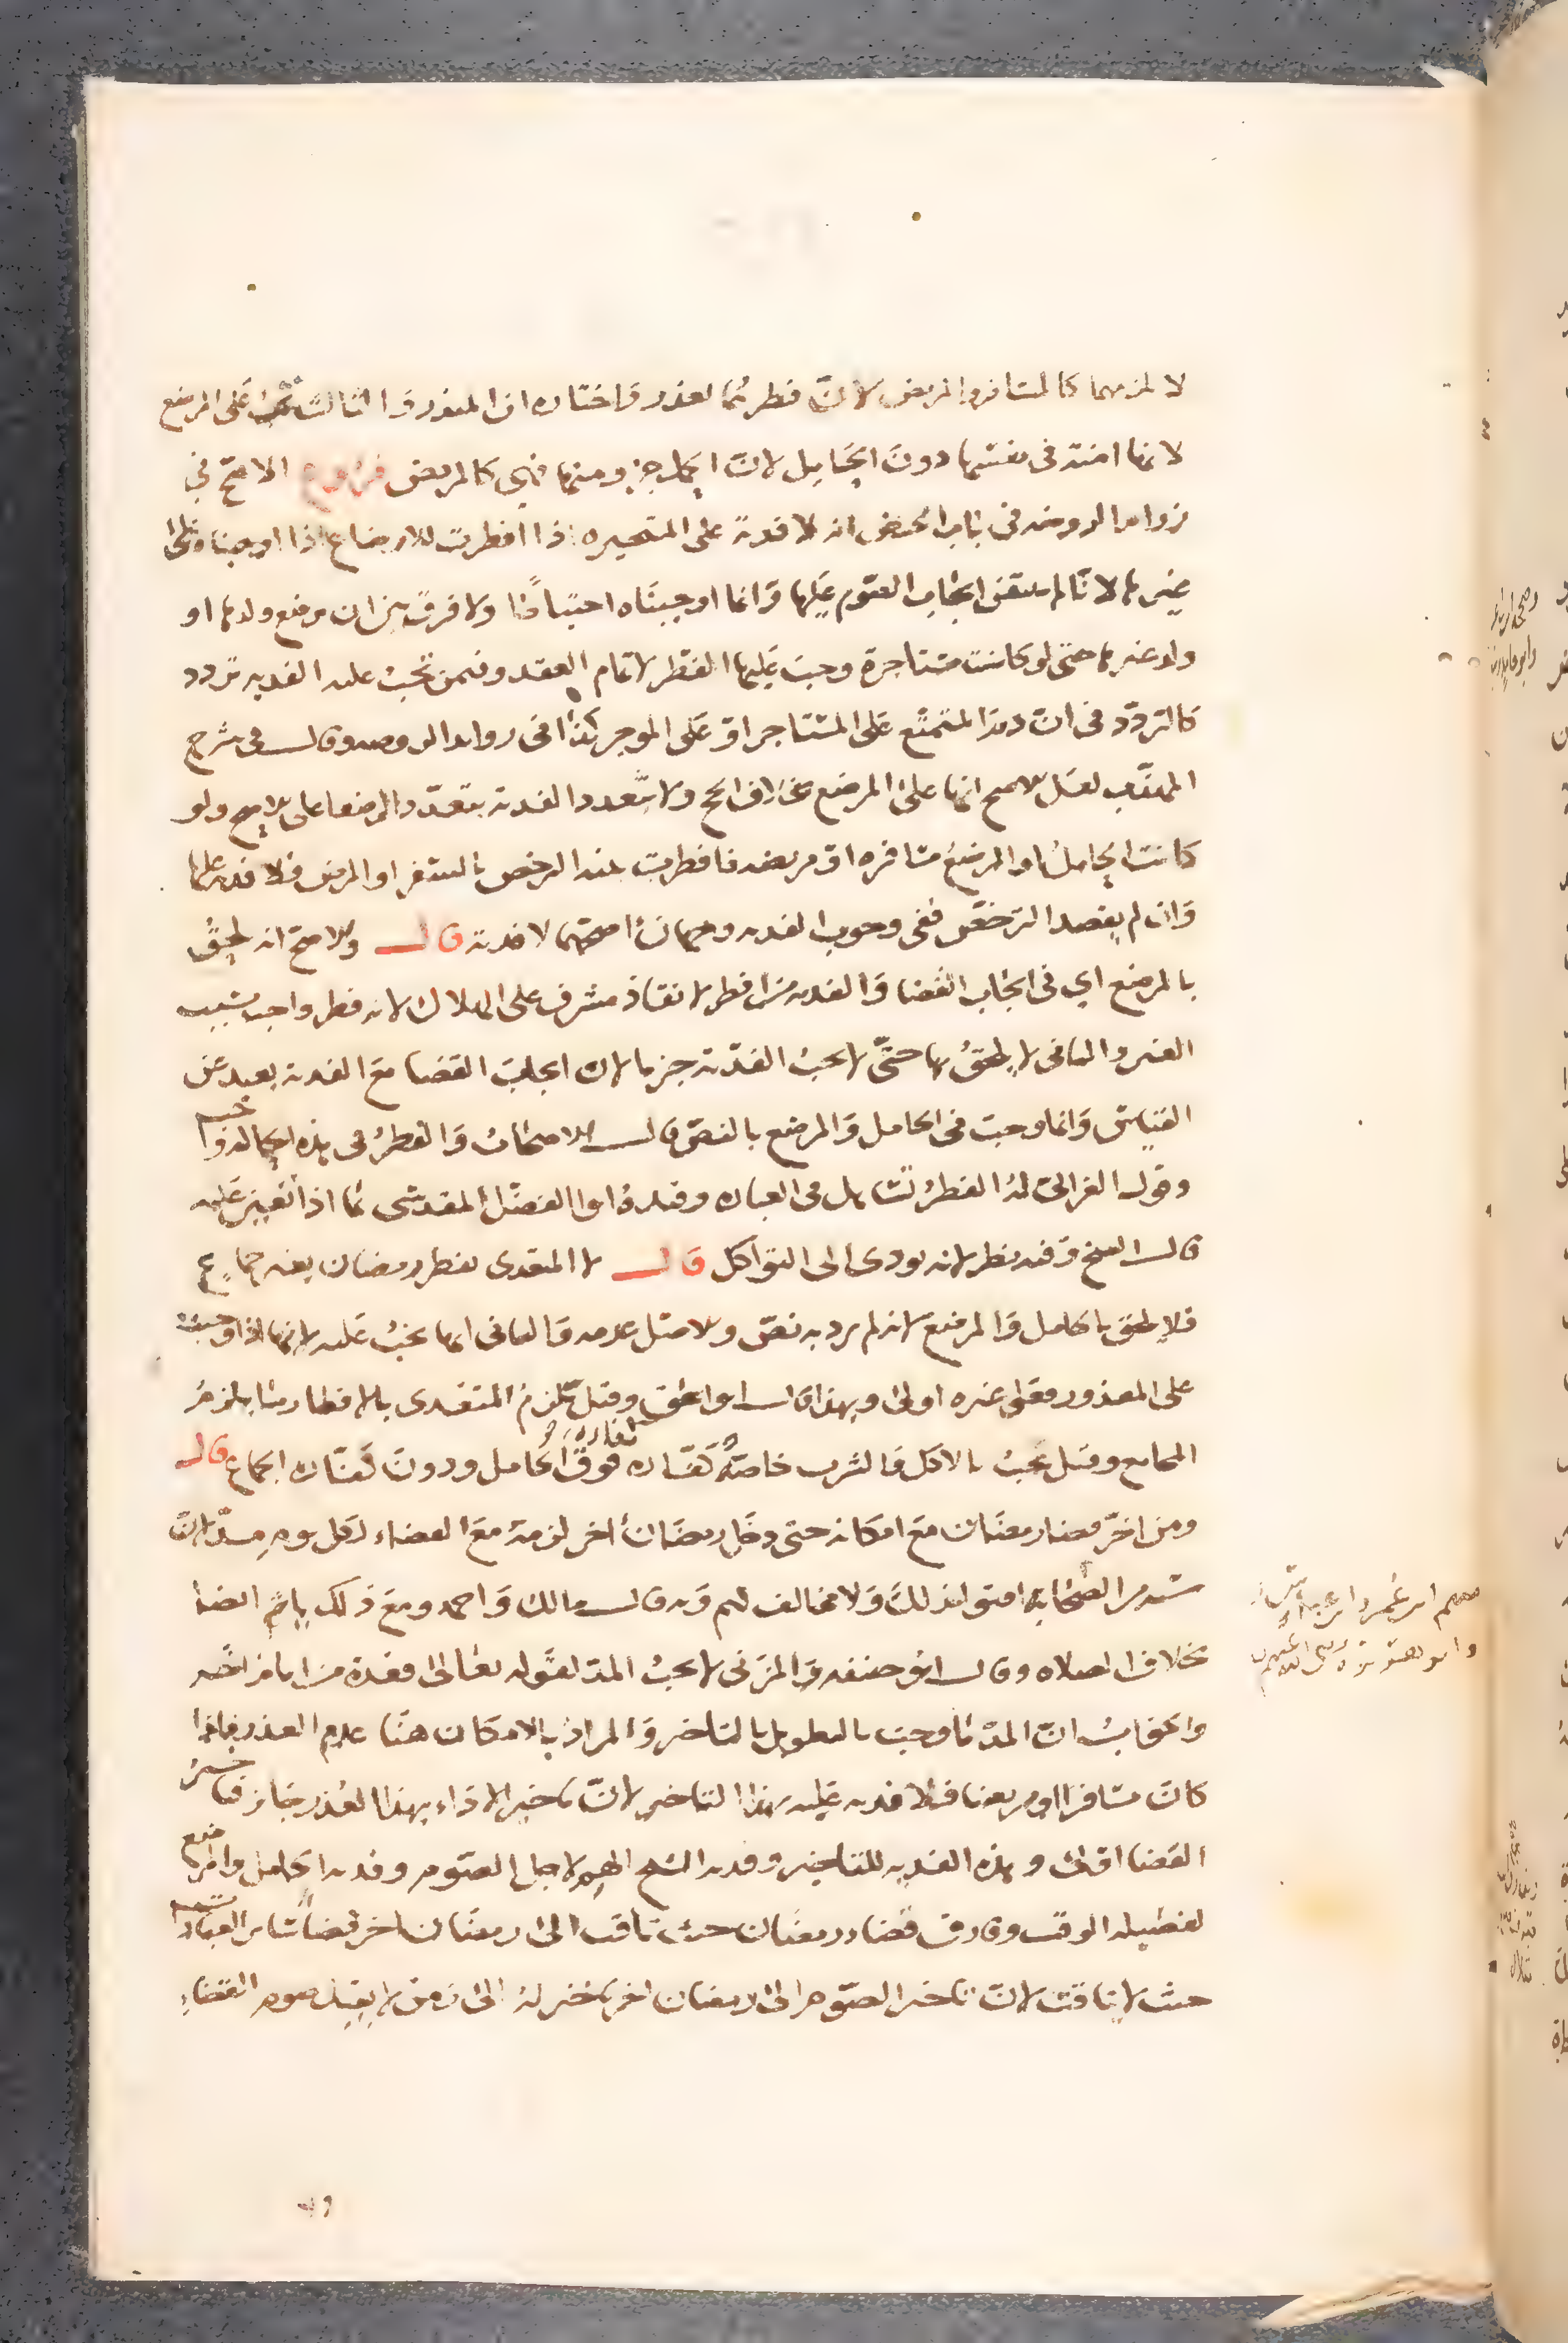 لا يلزمهما كالمسافر والمريض لان فطرهما لعذر واختاره ابن المنذر والثالث تجب على المرضع
لانها امنت في نفسها دون الحامل لان الحمل جزء منها فهي كالمريض فروع الاصح في
زوايد الروضة في باب الحيض انه لا فدية على المتحيره اذا افطرت للارضاع اذا اوجبنا على
غيرها لانا لم نتيقن ايجاب الصوم عليها وانما اوجبناه احتياطا ولا فرق بين ان ترضع ولدها او
ولد غيرها حتى لو كانت مستاجرة وجب عليها الفطر لاتمام العقد وفيمن تجب عليه الفديه تردد
كالتردد في ان دم التمتع على المستاجر او على الموجر كذا في زوايد الروضه وقال في شرح
المهذب لعل الاصح انها على المرضع بخلاف الحج ولا تتعدد الفدية بتعدد الرضعا على الاصح ولو
كانت الحامل او المرضع مسافره او مريضه فافطرت بقصد الترخص بالسفر او المرض فلا فديه عليها
وان لم تقصد الترخص ففي وجوب الفديه وجهان اصحهما لا فدية قال والاصح انه يلحق
بالمرضع اي في ايجاب القضا والفديه من افطر لانقاذ مشرف على الهلاك لانه فطر واجب بسبب
الغير والثاني لا يلحق بها حتى لا تجب الفدية جزما لان ايجاب القضا مع الفدية بعيد عن
القياس وانما وجبت في الحامل والمرضع بالنص قال الاصحاب والفطر في هذه الحالة واجب
وقول الغزالي له الفطر تساهل في العباره وقيده ابو الفضل المقدسي بما اذا تعين عليه
قال الشيخ وفيه نظر لانه يودي الى التواكل قال لا المتعدي بفطر رمضان بغير جماع
فلا يلحق بالحامل والمرضع لانه لم يرد به نص والاصل عدمه والثاني انها تجب عليه لانها اذا وجبت
على المعذور فعلى غيره اولى وبهذا قال ابو اسحق وقيل يلزم المتعدي بالافطار ما يلزم
المجامع وقيل تجب بالاكل والشرب خاصة كفاره فوق كفارة الحامل ودون كفاره الجماع قال
ومن اخر قضا رمضان مع امكانه حتى دخل رمضان اخر لزمه مع القضاء لكل يوم مد لان
ستة من الصحابه افتوا بذلك ولا مخالف لهم وبه قال مالك واحمد ومع ذلك ياثم ايضا
بخلاف الصلاه وقال ابو حنيفه والمزني لا يجب المد لقوله تعالى فعدة من ايام اخر
والجواب ان المد ما وجب بالفطر بل بالتاخير والمراد بالامكان هنا عدم العذر فاذا
كان مسافرا او مريضا فلا فديه عليه بهذا التاخير لان تاخير الاداء بهذا العذر جايز فتاخير
القضا اولى وهذه الفديه للتاخير وفديه الشيخ الهرم لاصل الصوم وفديه الحامل والمرضع
لفضيله الوقت وفارق قضاء رمضان حيث تاقت الى رمضان اخر قضا ساير العبادات
حيث لا يتاقت لان تاخير الصوم الى رمضان اخر تاخير له الى زمن لا يقبل صوم القضاء
منهم ابن عمر وابن عباس
وابو هريرة رضي الله عنهم